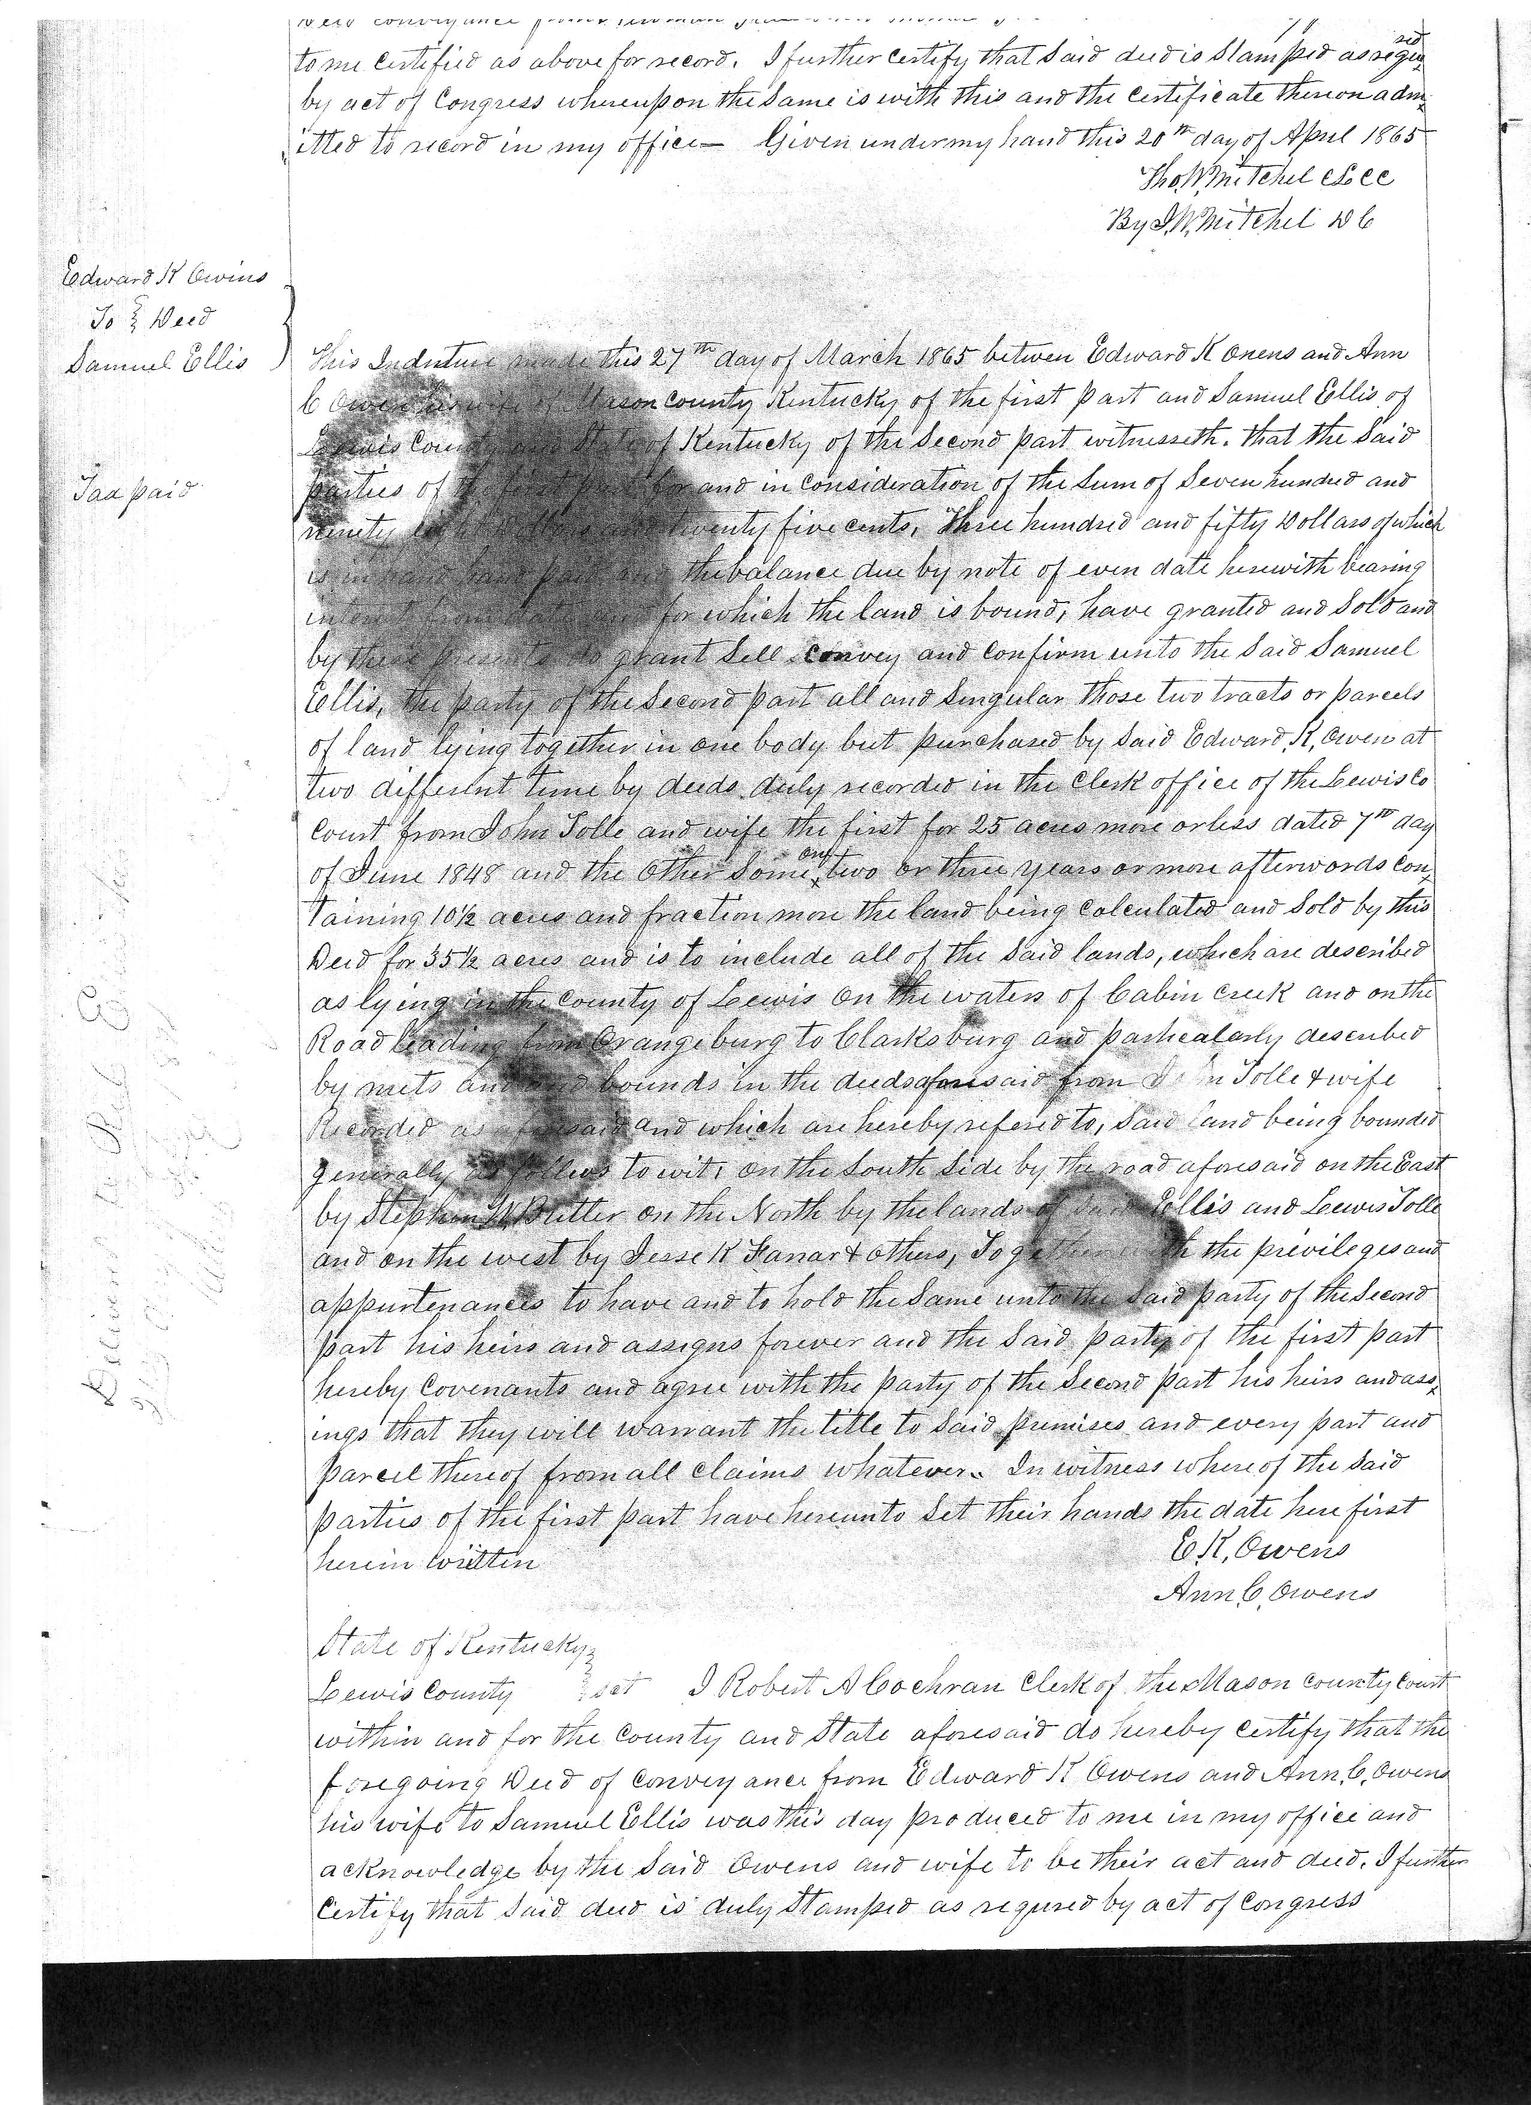 to me certified as above for record. I further certify that said deed is stamped as requ=
ired
by act of Congress whereupon the same is with this and the certificate thereon adm=
itted to record in my office— Given under my hand this 20th day of April 1865
Tho. W. Mitchel CLCC
By J. W. Mitchel DC
Edward K Owins
To } Deed
Samuel Ellis
Tax paid
This Indenture made this 27th day of March 1865 betwen Edward K Owens and Ann
C Owens his wife of Mason County Kentucky of the first part and Samuel Ellis of
Lewis County and State of Kentucky of the second part witnesseth. that the said
parties of the first part for and in consideration of the sum of seven hundred and
ninety eight Dollars and twenty five cents, Three hundred and fifty Dollars of which
is in hand paid and the balance due by note of even date herewith bearing
interest from date and for which the land is bound, have granted and sold and
by these presents do grant sell convey and confirm unto the said Samuel
Ellis, the party of the second part all and singular those two tracts or parcels
of land lying together in one body but purchased by said Edward, K, Owen at
two different time by deeds duly recorded in the Clerk office of the Lewis Co
Court from John Tolle and wife the first for 25 acres more or less dated 7th day
of June 1848 and the other some one x two or three years or more afterwords con=
taining 10½ acres and fraction more the land being calculated and sold by this
Deed for 35½ acres and is to include all of the said lands, which are described
as lying in the County of Lewis on the waters of Cabin Creek and on the
Road leading from Orangeburg to Clarksburg and particularly described
by mets and and bounds in the deeds aforesaid from John Tolle & wife
Recorded as aforesaid and which are hereby refered to, said land being bounded
generally as follows to wit, on the south side by the road aforesaid on the East
by Stephen W Butler on the North by the lands of Ellis and Lewis Tolle
and on the west by Jesse K Farrar & others, Together with the privileges and
appurtenances to have and to hold the same unto the said party of the second
part his heirs and assigns forever and the said party of the first part
hereby covenants and agree with the party of the second part his heirs and ass=
ings that they will warrant the title to said premises and every part and
parcel thereof from all claims whatever. In witness whereof the said
parties of the first part have hereunto set their hands the date here first
herein written
E. K, Owens
Ann. C. Owens
State of Kentucky }
Lewis County } sct I Robert A Cochran Clerk of the Mason county court
within and for the county and state aforesaid do hereby certify that the
foregoing Deed of conveyance from Edward K Owens and Ann, C, Owens
his wife to Samuel Ellis was this day produced to me in my office and
acknowledge by the said Owens and wife to be their act and deed. I further
certify that said deed is duly stamped as requred by act of congress